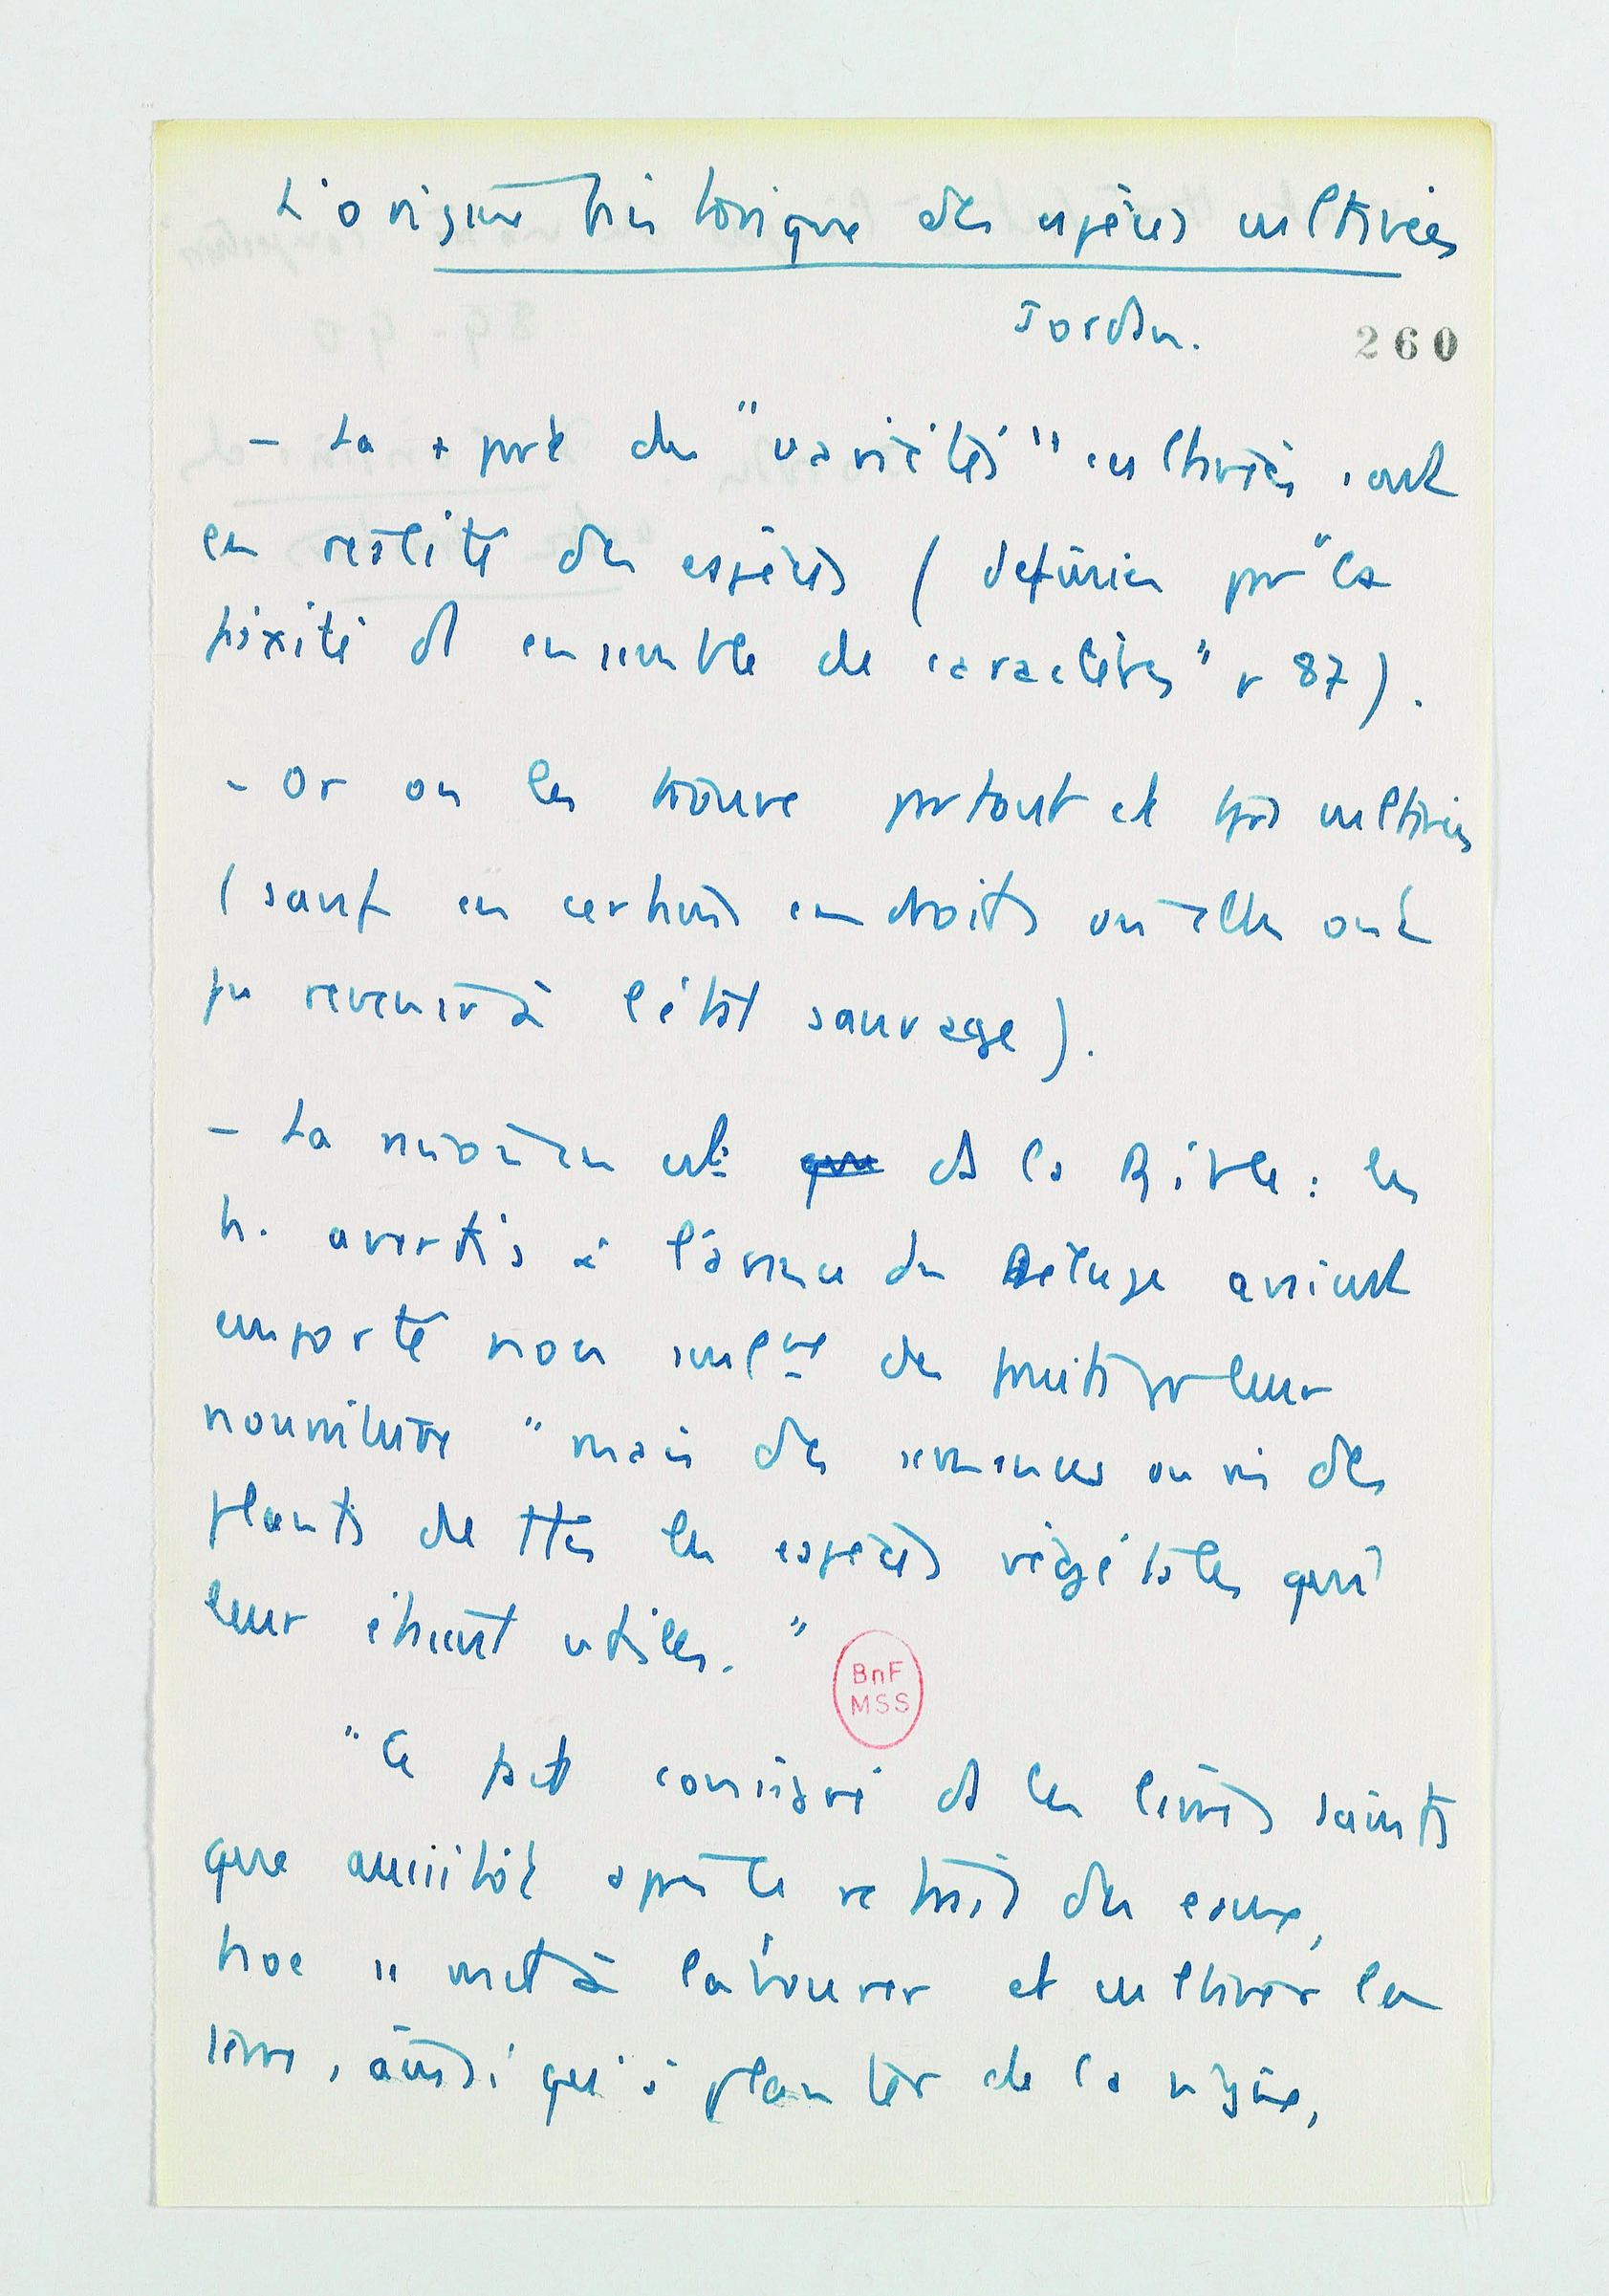 L'origine historique des espèces cultivées
Jordan.
260
- La + part des "variétés" cultivées sont
en réalité des espèces (définies par "la
fixité d ensemble de caractères" p 87).
- Or on les trouve partout et tjrs cultivées
(sauf en certains endroits où elles ont
pu revenir à l'état sauvage).
- La est ds la Bible : les
h. avertis à l'avance du Déluge avaient
emporté non seulᵗ des fruits pr leur
nourriture "mais des semences ou des
plants de ttes les espèces végétales qui
leur étaient utiles."
BnF
MSS
"Ce fait consigné ds les livres saints
que aussitôt après le retrait des eaux,
Noé se met à labourer et cultiver la
terre, ainsi qu'à planter de la vigne,